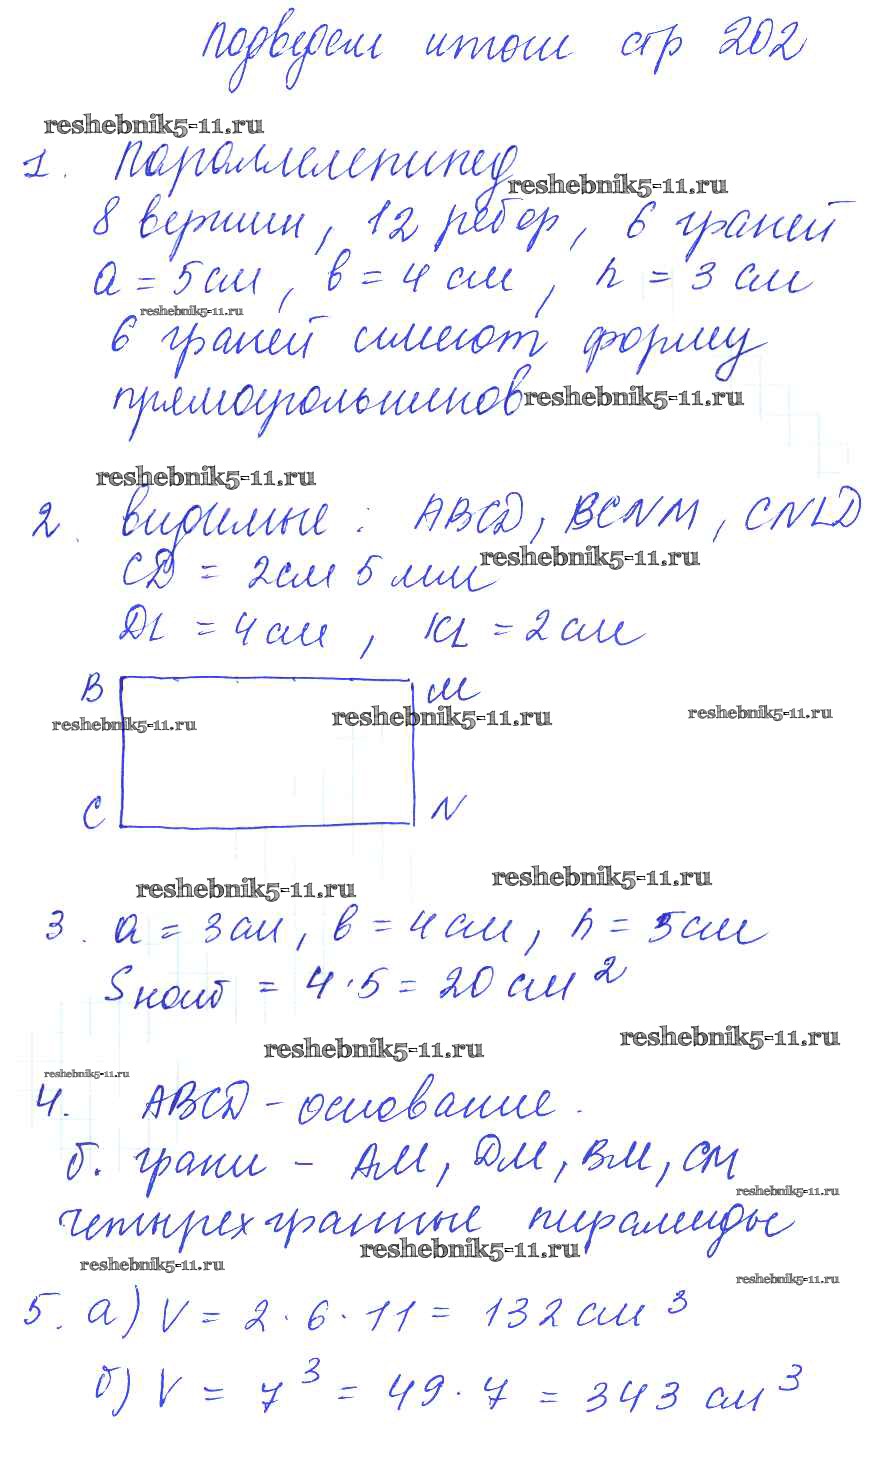 Подведем итоги стр 202
reshebnik5-11.ru
1. Параллелепипед
reshebnik5-11.ru
8 вершин, 12 ребер, 6 граней
a = 5 см, в = 4 см, h = 3 см
reshebnik5-11.ru
6 граней имеют форму
прямоугольников
reshebnik5-11.ru
reshebnik5-11.ru
2. видимые: ABCD, BCNM, CNLD
reshebnik5-11.ru
CD = 2см 5 мм
DL = 4 см, KL = 2 см
B M
reshebnik5-11.ru reshebnik5-11.ru reshebnik5-11.ru
C N
reshebnik5-11.ru reshebnik5-11.ru
3. a = 3 см, в = 4 см, h = 5 см
Sнаиб = 4 · 5 = 20 см²
reshebnik5-11.ru reshebnik5-11.ru
reshebnik5-11.ru
4. ABCD - основание.
б. грани - AM, DM, BM, CM
reshebnik5-11.ru
четырехгранные пирамиды
reshebnik5-11.ru
reshebnik5-11.ru reshebnik5-11.ru
5. а) V = 2 · 6 · 11 = 132 см³
б) V = 7³ = 49 · 7 = 343 см³